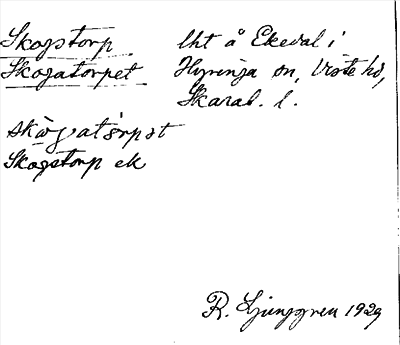 Skogstorp
Skogatorpet
lht å Ekedal i
Hyringa sn, Viste hd,
Skarab. l.
skògatò̀rpət
Skogstorp ek
R. Ljunggren 1929